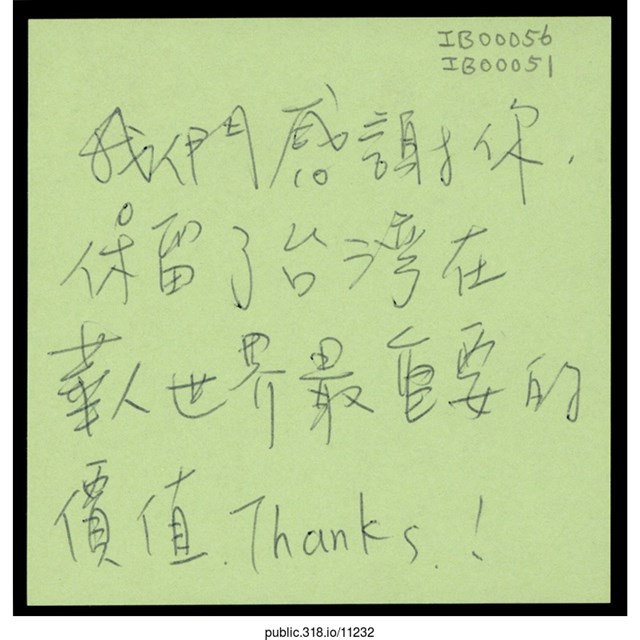 IB00056
IB00051
我們感謝你,
保留了台灣在
華人世界最重要的
價值. Thanks.!
public.318.io/11232